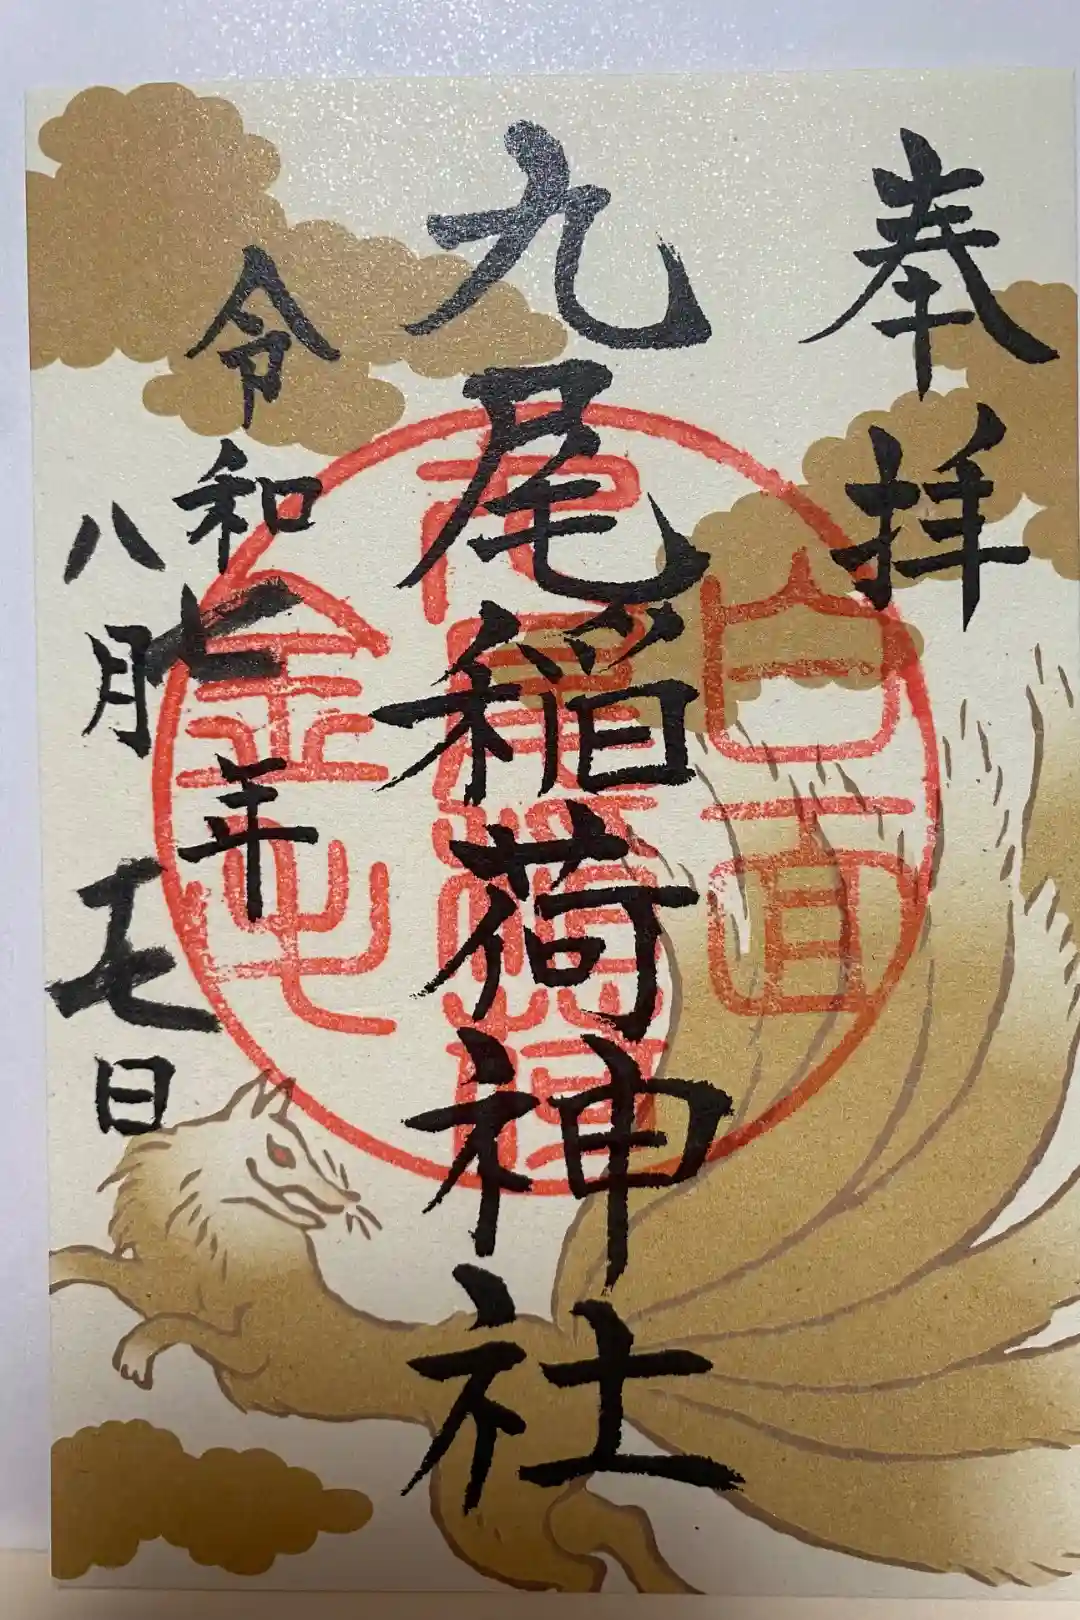 奉拝
九尾稲荷神社
令和七年
八月十七日
白面
金毛